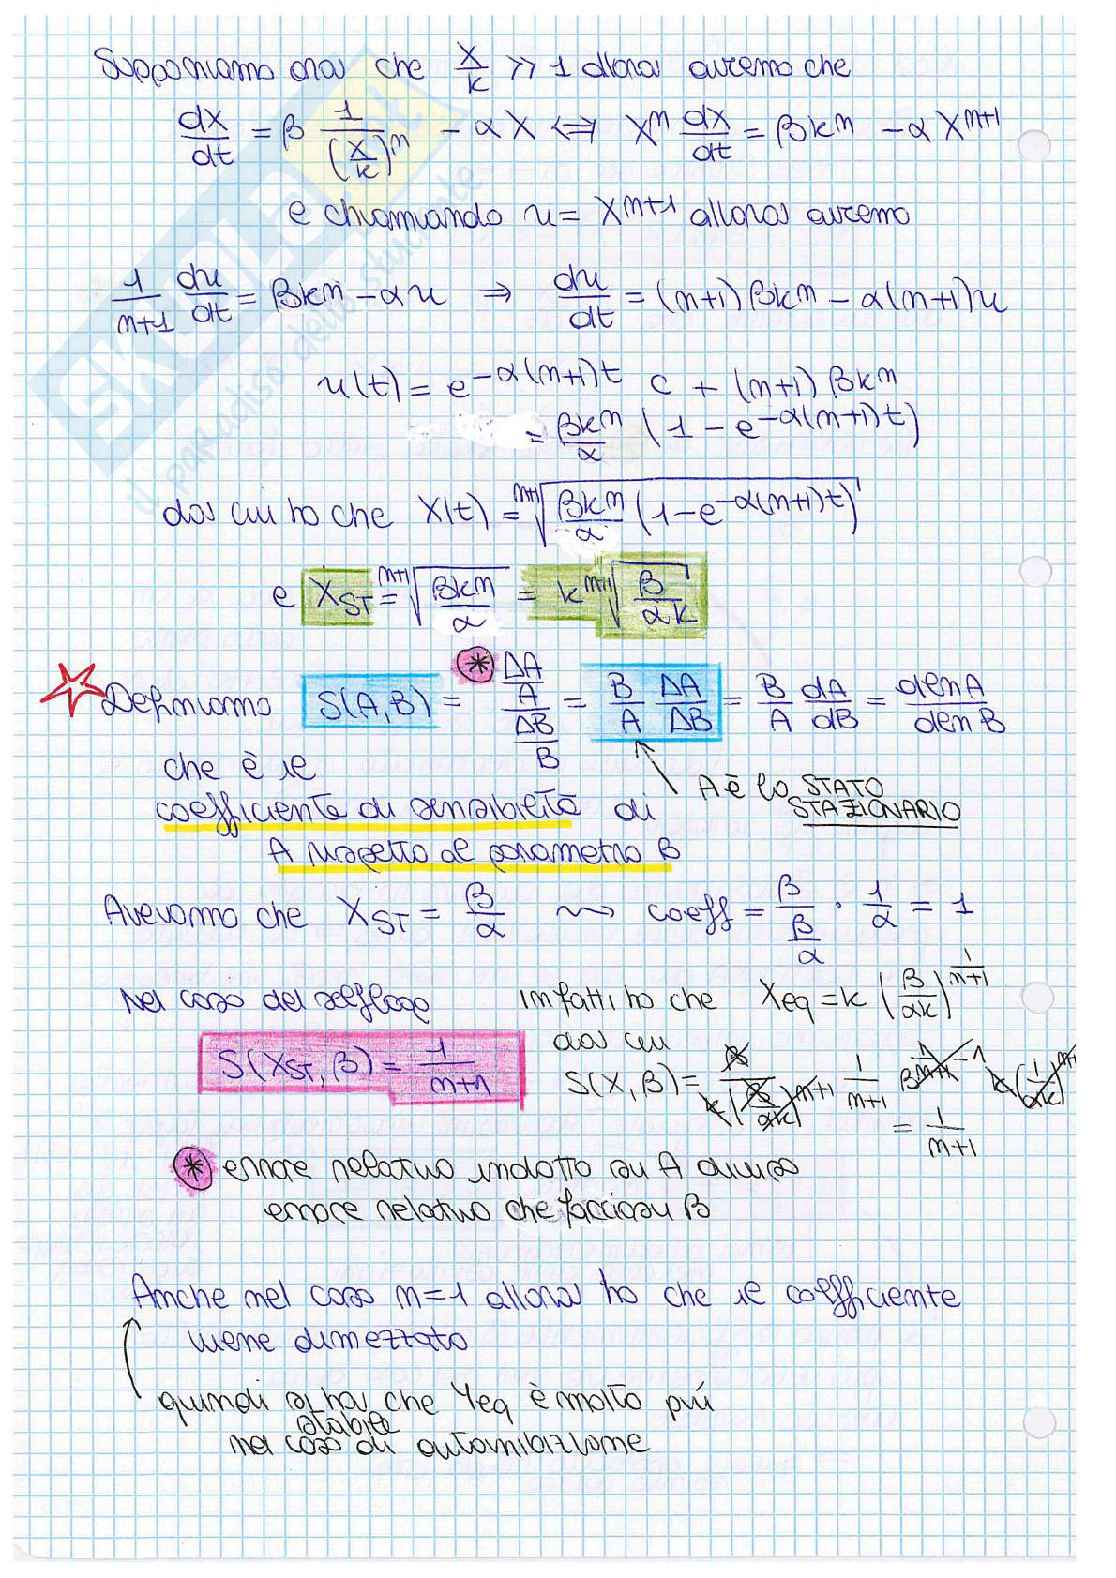 Supponiamo ora che x/k >> 1 allora avremo che
dx/dt = β 1/(x/k)^n - αx ⟺ x^n dx/dt = βk^n - αx^(n+1)
e chiamando u = x^(n+1) allora avremo
1/(n+1) du/dt = βk^n - αu ⇒ du/dt = (n+1)βk^n - α(n+1)u
u(t) = e^(-α(n+1)t) c + (n+1)βk^n
= βk^n/α (1 - e^(-α(n+1)t))
da cui ho che x(t) = ^(n+1)√(βk^n/α (1-e^(-α(n+1)t)))
e X_ST = ^(n+1)√(βk^n/α) = k ^(n+1)√(β/(αk))
Definiamo S(A,B) = * (ΔA/A)/(ΔB/B) = B/A ΔA/ΔB = B/A dA/dB = dlnA/dlnB
che è il
coefficiente di sensibilità di
A rispetto al parametro B
A è lo STATO
STAZIONARIO
Avevamo che X_ST = β/α ⇝ coeff = β/(β/α) · 1/α = 1
Nel caso del selfloop
S(X_ST, β) = 1/(n+1)
infatti ho che Xeq = k (β/(αk))^(1/(n+1))
da cui
S(X,β) = β/(k(β/(αk))^(n+1)) 1/(n+1) β^(1/(n+1) -1) k(1/(αk))^(n+1)
= 1/(n+1)
* errore relativo indotto su A diviso
errore relativo che faccio su B
Anche nel caso n=1 allora ho che il coefficiente
viene dimezzato
quindi si ha che Yeq è molto più
stabile
nel caso di autoinibizione
SKUOLA
il paradiso dello studente